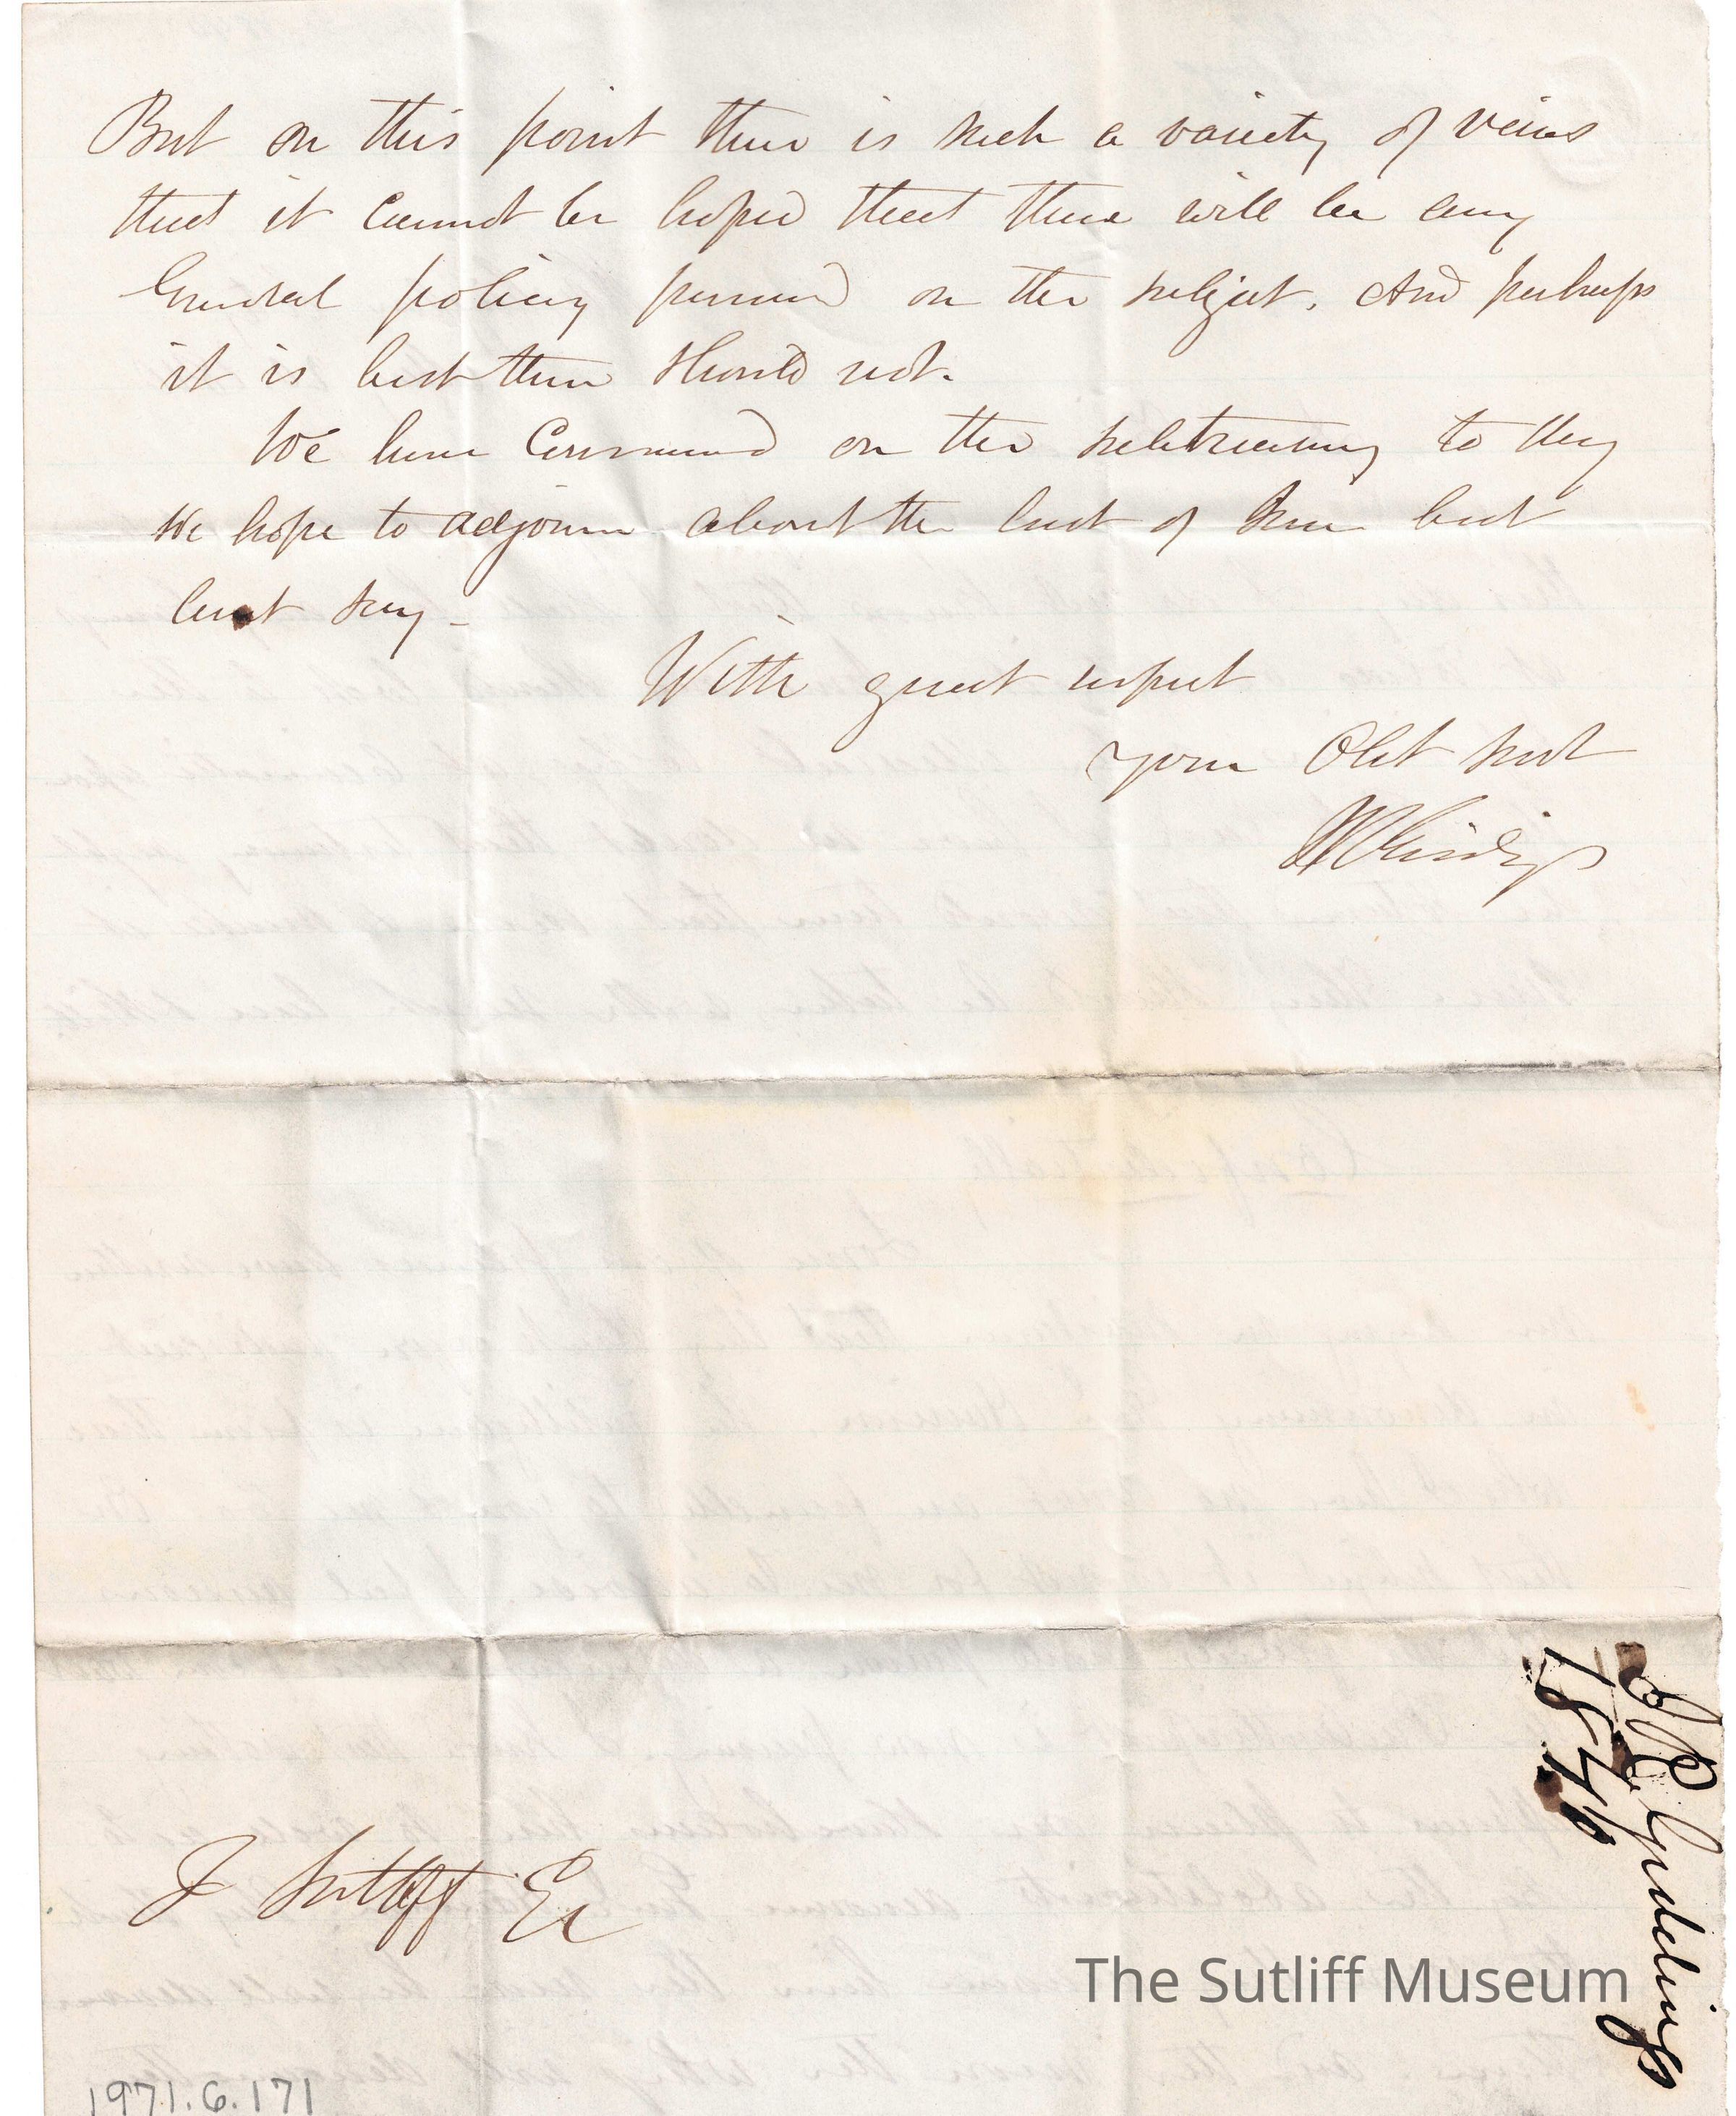 But on this point there is such a variety of veiws
that it cannot be hoped that there will be any
General policy pursued on the subject. And perhaps
it is best there should not.
We have commenced on the subtreasury to day
We hope to adjourn about the last of June but
cant say -
With great respect
your Obt Svt
J R Giddings
J Sutliff Es
J R Giddings
1846
The Sutliff Museum
1971.6.171